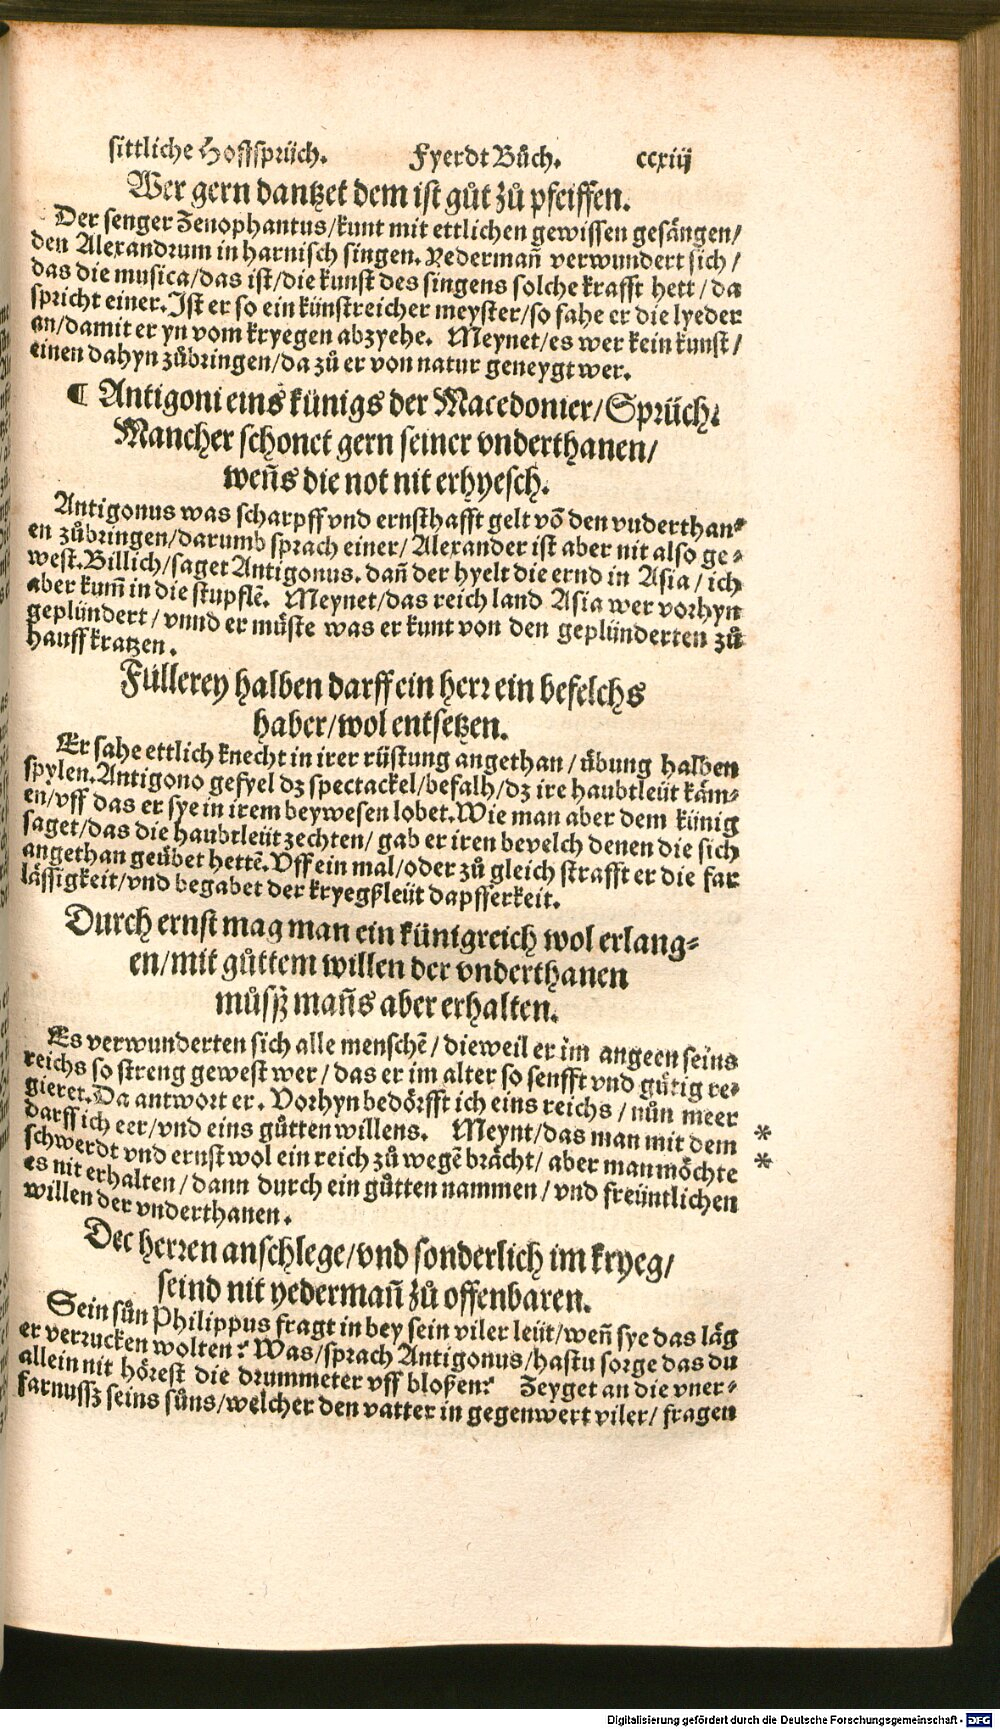 sittliche Hoffsprüch. Fyerdt Bůch. ccxiij
Wer gern dantzet dem ist gůt zů pfeiffen.
Der senger Zenophantus/kunt mit ettlichen gewissen gesängen/
den Alexandrum in harnisch singen. Yederman̄ verwundert sich/
das die musica/das ist/die kunst des singens solche krafft hett/da
spricht einer. Ist er so ein künstreicher meyster/so fahe er die lyeder
an/damit er yn vom kryegen abzyehe. Meynet/es wer kein kunst/
einen dahyn zůbringen/da zů er von natur geneygt wer.
¶ Antigoni eins künigs der Macedonier/Sprüch.
Mancher schonet gern seiner vnderthanen/
wen̄s die not nit erhyesch.
Antigonus was scharpff vnd ernsthafft gelt vō den vnderthan⸗
en zůbringen/darumb sprach einer/Alexander ist aber nit also ge⸗
west. Billich/saget Antigonus. dan̄ der hyelt die ernd in Asia/ich
aber kum̄ in die stupflē. Meynet/das reich land Asia wer vorhyn
geplündert/vnnd er müste was er kunt von den geplünderten zů
hauff kratzen.
Füllerey halben darff ein herr ein befelchs
haber/wol entsetzen.
Er sahe ettlich knecht in irer rüstung angethan/übung halben
spylen. Antigono gefyel dz spectackel/befalh/dz ire haubtleüt käm⸗
en/vff das er sye in irem beywesen lobet. Wie man aber dem künig
saget/das die haubtleüt zechten/gab er iren bevelch denen die sich
angethan geübet hettē. Vff ein mal/oder zů gleich strafft er die far
lässigkeit/vnd begabet der kryegßleüt dapfferkeit.
Durch ernst mag man ein künigreich wol erlang⸗
en/mit gůttem willen der vnderthanen
můsß man̄s aber erhalten.
Es verwunderten sich alle menschē/dieweil er im angeen seins
reichs so streng gewest wer/das er im alter so senfft vnd gütig re⸗
gieret. Da antwort er. Vorhyn bedörfft ich eins reichs/nůn meer
darff ich eer/vnd eins gůtten willens. Meynt/das man mit dem *
schwerdt vnd ernst wol ein reich zů wegē brächt/aber man möchte *
es nit erhalten/dann durch ein gůtten nammen/vnd freüntlichen
willen der vnderthanen.
Der herren anschlege/vnd sonderlich im kryeg/
seind nit yederman̄ zů offenbaren.
Sein sůn Philippus fragt in bey sein viler leüt/wen̄ sye das läg
er verrucken wolten? Was/sprach Antigonus/hastu sorge das du
allein nit hörest die drummeter vff bloßen? Zeyget an die vner⸗
farnussz seins sůns/welcher den vatter in gegenwert viler/fragen
Digitalisierung gefördert durch die Deutsche Forschungsgemeinschaft - DFG